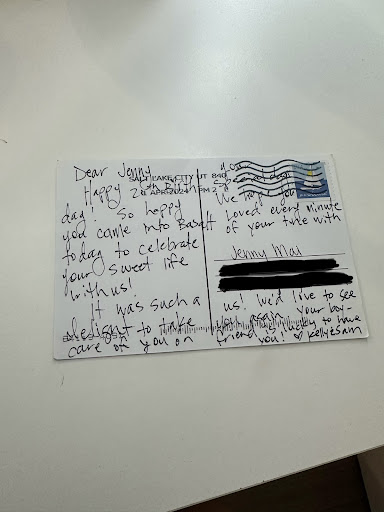 Dear Jenny
Happy 2 th Birth
day! So happy
you came into Basalt
today to celebrate
your sweet life
with us!
It was such a
delight to take
care of you on
SALT LAKE CITY UT 840
APR 2024 PM 2
your
special day.
We hope you
loved every minute
of your time with
Jenny Mai
us! We'd love to see
you again. Your boy-
friend is lucky to have
you! ♡ Kelly & Sam